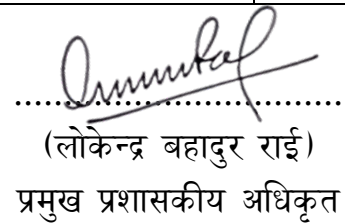 (लोकेन्द्र बहादुर राई)
प्रमुख प्रशासकीय अधिकृत